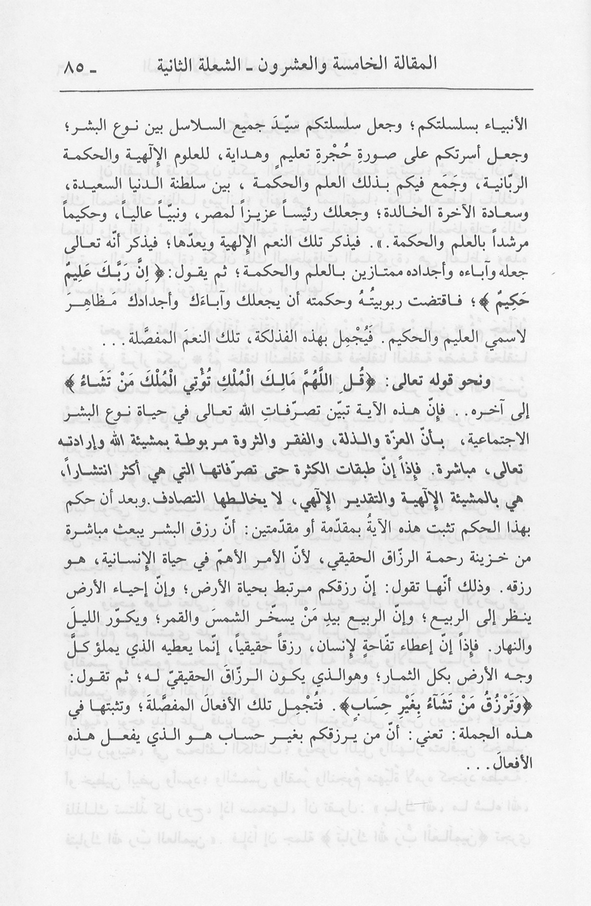 المقالة الخامسة والعشرون ـ الشعلة الثانية ـ ٨٥
الأنبيـاء بسلسلتكم؛ وجعـل سلسلتكم سيّـدَ جميع الســلاسل بين نـوع البشـر؛
وجعـل أسرتكم على صـورةِ حُجْـرةِ تعليمٍ وهـدايـة، للعلوم الإلٓـهية والحكمة
الربّـانية، وجَمَع فيكم بـذلك العلم والحكمـة ، بين سلطنـة الـدنيـا السعيـدة،
وسعـادة الآخرة الخـالدة؛ وجعلك رئيسـاً عـزيـزاً لمصـر، ونبيّـاً عـاليـاً، وحكيماً
مرشداً بالعلم والحكمة.». فيذكر تلك النعم الإلهية ويعدّها؛ فيذكر أنّه تعـالى
جعله وآبـاءه وأجداده ممتـازين بـالعلم والحكمة؛ ثم يقـول:﴿ إنَّ رَبَّـكَ عَلِيمٌ
حَكِيمٌ ﴾؛ فـاقتضت ربوبيتُـهُ وحكمته أن يجعلك وآبـاءَك وأجدادك مَظـاهِـرَ
لاسمي العليم والحكيم. فَيُجْمِل بهذه الفذلكة، تلك النعمَ المفصَّلة...
ونحو قوله تعالى: ﴿قُـلِ اللَّهُمَّ مَالِـكَ الْمُلْكِ تُـؤْتِي الْمُلْكَ مَنْ تَشَـاءُ ﴾
إلى آخـره.. فإنّ هـذه الآيـة تبيّن تصـرّفـاتِ الله تعـالى في حيـاة نـوع البشـر
الاجتماعية، بـأنّ العزّة والـذلة، والفقـر والثروة مـربوطـة بمشيئة الله وإرادتـه
تعالى، مباشرة. فإذاً إنّ طبقات الكثرة حتى تصرّفاتها التي هي أكثر انتشـاراً،
هي بالمشيئة الإلٓهية والتقدير الإلٓهي، لا يخالطها التصادف.وبعد أن حكم
بهذا الحكم تثبت هذه الآيةُ بمقدّمة أو مقدّمتين: أنّ رزق البشر يبعث مباشـرة
من خـزينة رحمـة الرزّاق الحقيقي، لأنّ الأمـر الأهمّ في حياة الإنسـانية، هـو
رزقه. وذلك أنّهـا تقول: إنّ رزقكم مـرتبط بحيـاة الأرض؛ وإنّ إحيـاء الأرض
ينـظر إلى الربيـع؛ وإنّ الربيـع بيدِ مَنْ يسخّـر الشمسَ والقمر؛ ويكـوّر الليـلَ
والنهار. فإذاً إنّ إعطاء تفّاحةٍ لإنسان، رزقاً حقيقياً، إنّما يعطيه الذي يملؤ كـلَّ
وجـه الأرض بكل الثمـار؛ وهوالـذي يكـون الـرزّاقَ الحقيقيّ لـه؛ ثم تقـول:
﴿وَتَرْزُقُ مَنْ تَشَآءُ بِغَيْرِ حِسَابٍ﴾. فتُجْمِـل تلك الأفعالَ المفصَّلةَ؛ وتثبتهـا في
هـذه الجملة: تعني: أنّ من يـرزقكم بغيـر حسـاب هـو الـذي يفعـل هـذه
الأفعالَ...